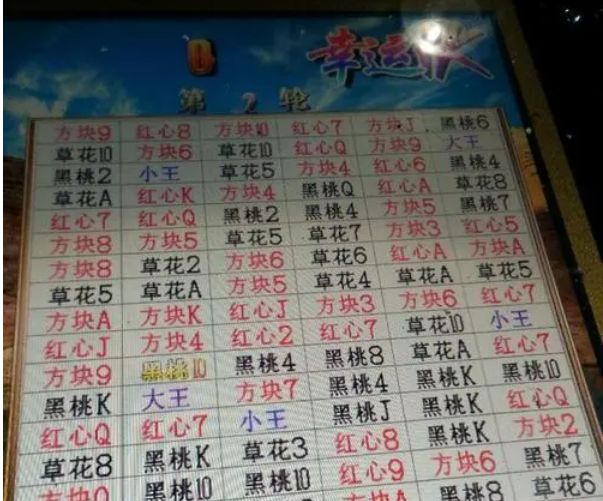 0
幸运
第 2 轮
方块9 红心8 方块10 红心7 方块J 黑桃6
草花10 方块6 草花10 红心Q 方块9 大王
黑桃2 小王 草花5 方块4 红心6 黑桃4
草花A 红心K 方块4 黑桃Q 红心A 草花8
红心7 红心Q 黑桃2 黑桃4 方块5 黑桃7
方块8 方块5 草花5 草花7 方块3 红心5
方块8 草花2 方块6 草花6 红心A 方块A
草花5 草花A 方块5 草花4 草花A 草花5
方块A 方块K 红心J 方块3 方块6 红心7
红心J 方块4 红心2 红心7 草花10 小王
方块9 黑桃10 黑桃4 黑桃8 草花A 红心7
黑桃K 大王 方块7 黑桃4 黑桃K 黑桃10
红心Q 红心7 小王 黑桃J 黑桃K 红心Q
草花8 黑桃K 草花3 红心8 黑桃K 方块2
黑桃10 黑桃10 红心9 方块6 黑桃7
方块A 黑桃8 草花6